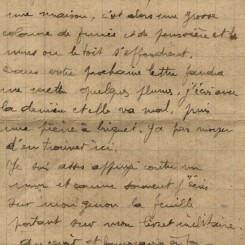 une maison, c'est alors une grosse
colonne de fumée et de poussière et le
murs ou le toit s'effondrent.
Dans votre prochaine lettre faudra
me mettre quelques plumes, j'écris avec
la dernière et elle va mal, puis
une pierre à briquet. Ya pas moyen
d'en trouver ici.
Je suis assis appuyé contre un
mur et comme souvent j'écris
sur mon genou la feuille
portant sur mon livret militaire.